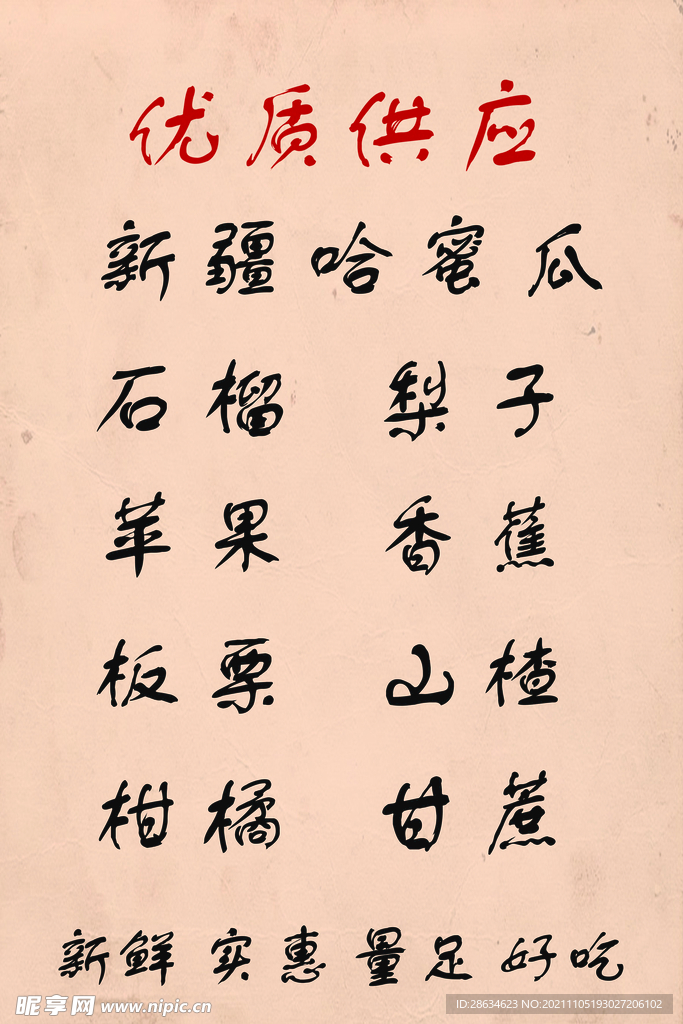 优质供应
新疆哈蜜瓜
石榴 梨子
苹果 香蕉
板栗 山楂
柑橘 甘蔗
新鲜 实惠 量足 好吃
昵享网 www.nipic.cn
ID:28634623 NO:20211105193027206102